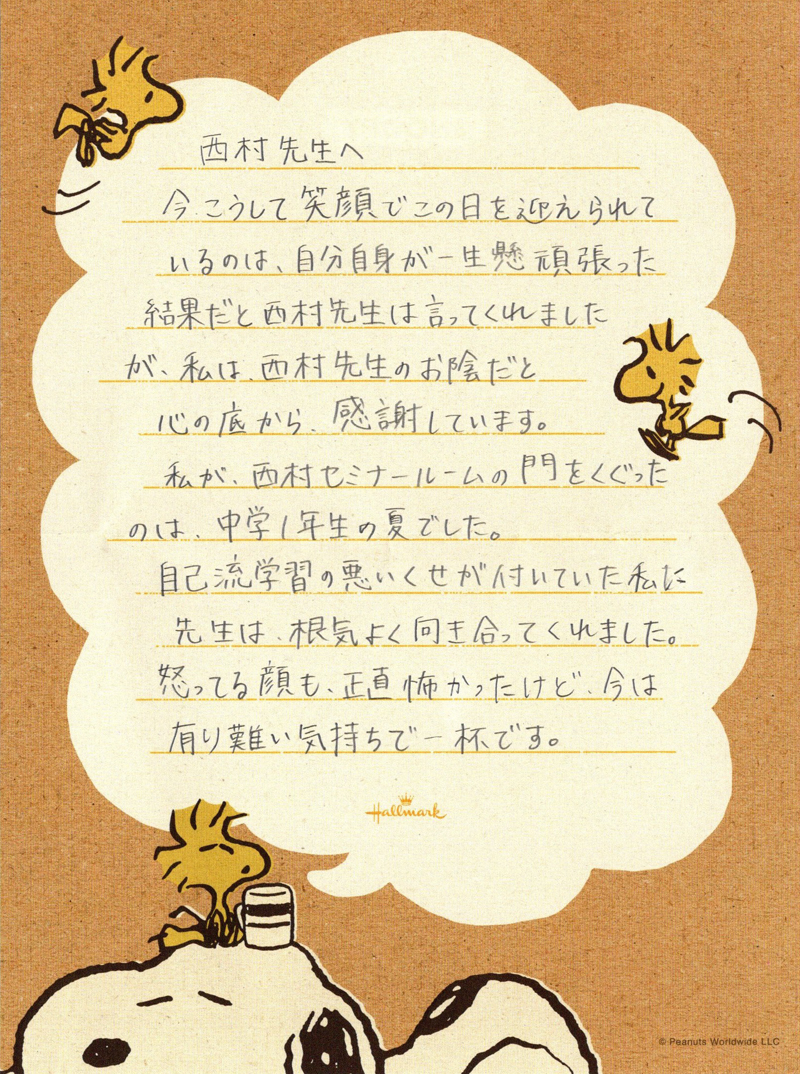 西村先生へ
今こうして笑顔でこの日を迎えられて
いるのは、自分自身が一生懸頑張った
結果だと西村先生は言ってくれました
が、私は、西村先生のお陰だと
心の底から、感謝しています。
私が、西村セミナールームの門をくぐった
のは、中学1年生の夏でした。
自己流学習の悪いくせが付いていた私に
先生は、根気よく向き合ってくれました。
怒ってる顔も、正直怖かったけど、今は
有り難い気持ちで一杯です。
Hallmark
© Peanuts Worldwide LLC